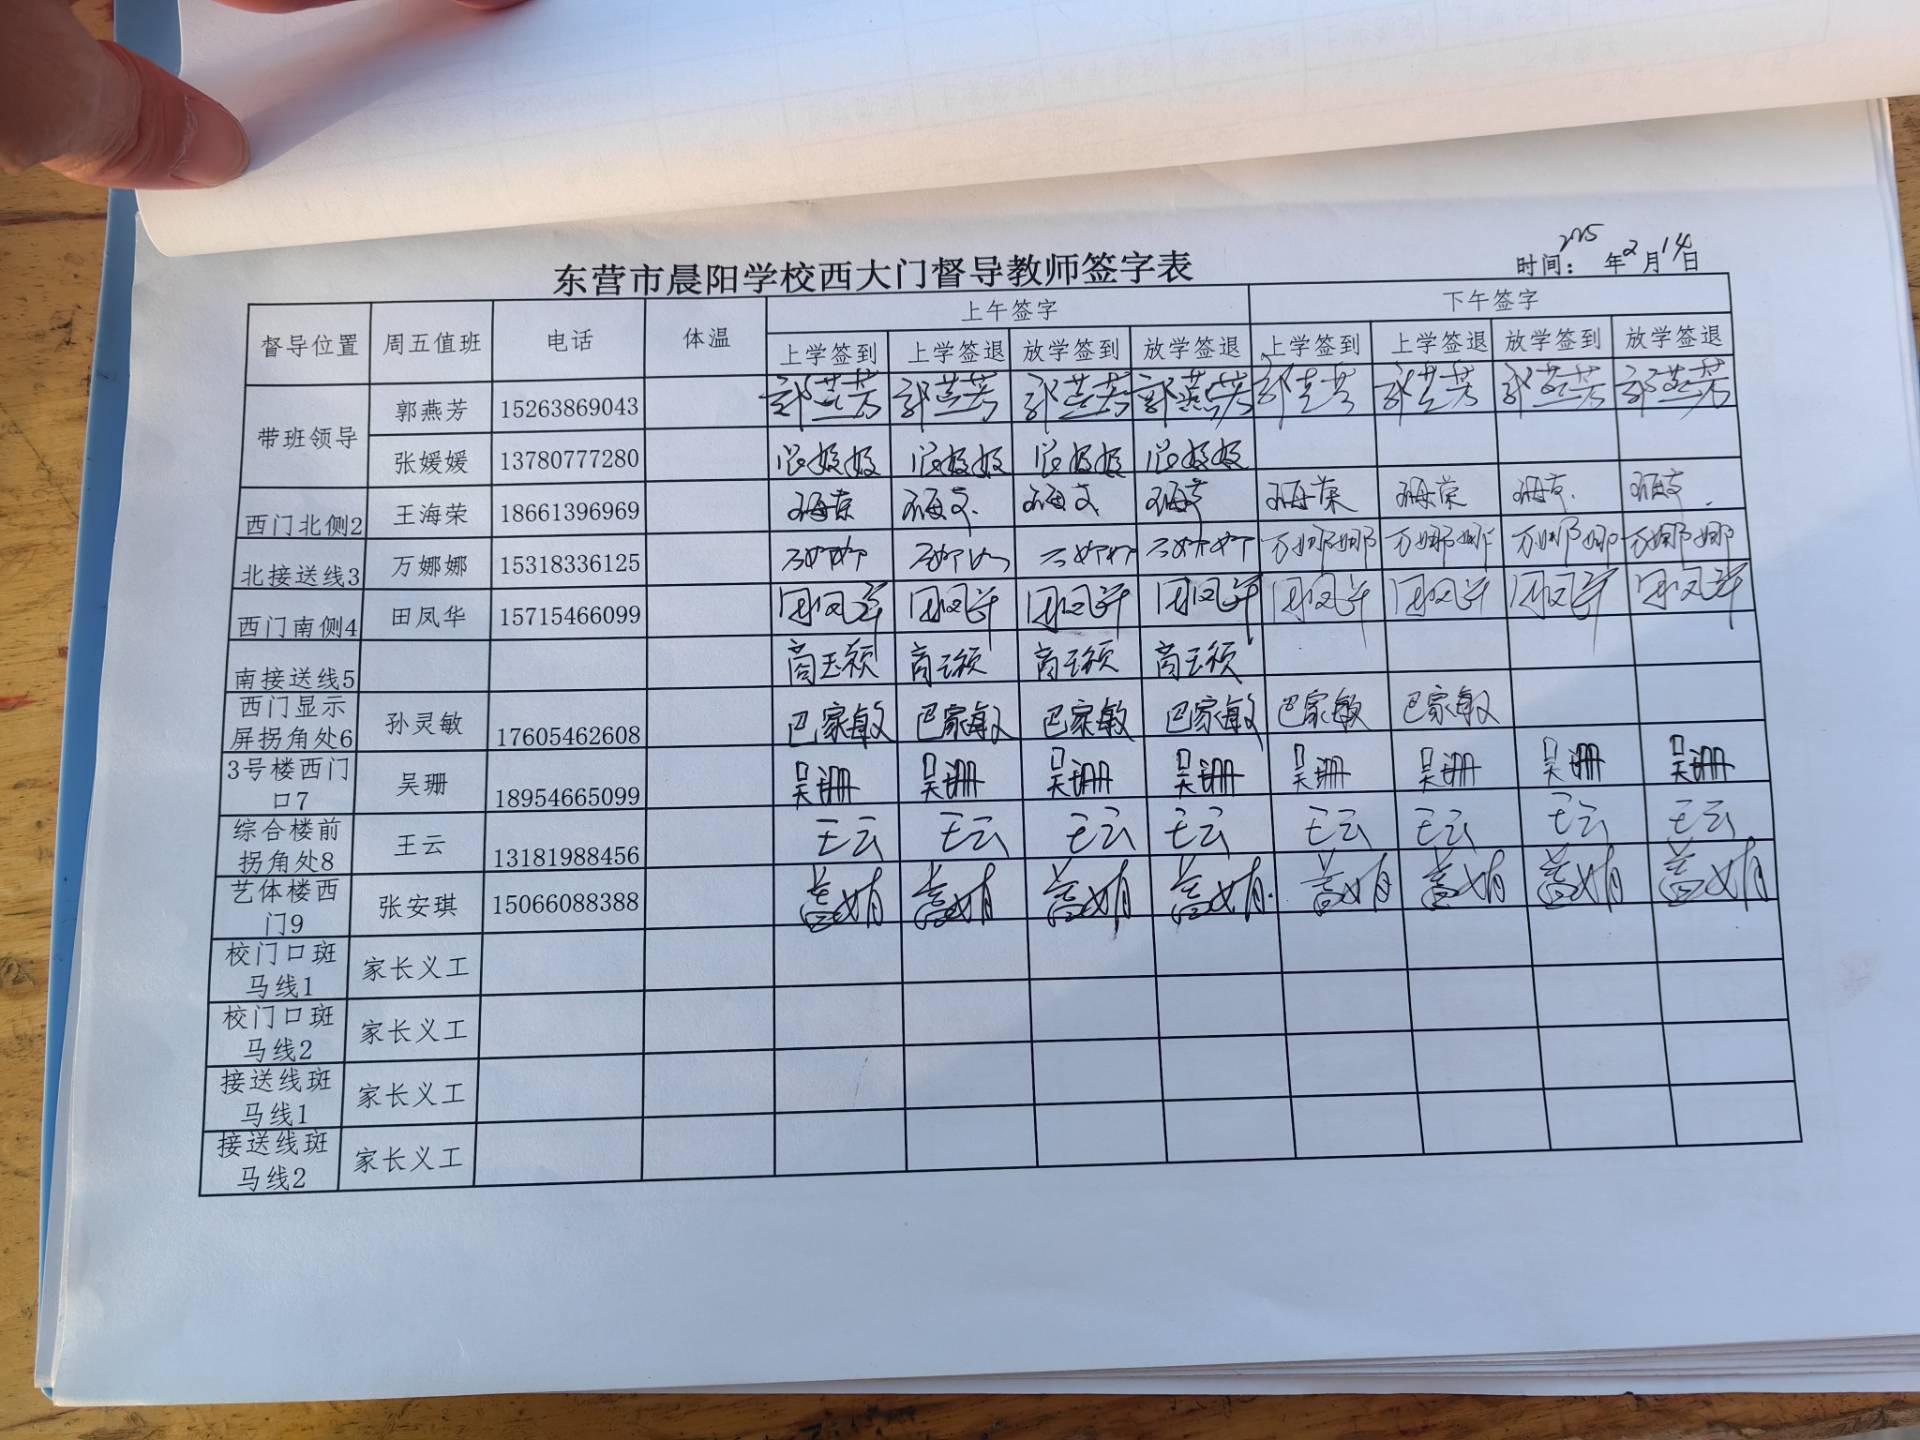 东营市晨阳学校西大门督导教师签字表
时间： 2025 年 2 月 14 日
督导位置 周五值班 电话 体温 上午签字 下午签字
上学签到 上学签退 放学签到 放学签退 上学签到 上学签退 放学签到 放学签退
带班领导 郭燕芳 15263869043 郭燕芳 郭燕芳 郭燕芳 郭燕芳 郭燕芳 郭燕芳 郭燕芳 郭燕芳
张媛媛 13780777280 张媛媛 张媛媛 张媛媛 张媛媛
西门北侧2 王海荣 18661396969 王海荣 王海荣 王海荣 王海荣 王海荣 王海荣 王海荣 王海荣
北接送线3 万娜娜 15318336125 万娜娜 万娜娜 万娜娜 万娜娜 万娜娜 万娜娜 万娜娜 万娜娜
西门南侧4 田凤华 15715466099 田凤华 田凤华 田凤华 田凤华 田凤华 田凤华 田凤华 田凤华
南接送线5 商玉颖 商玉颖 商玉颖 商玉颖
西门显示
屏拐角处6 孙灵敏 17605462608 巴家敏 巴家敏 巴家敏 巴家敏 巴家敏 巴家敏
3号楼西门
口7 吴珊 18954665099 吴珊 吴珊 吴珊 吴珊 吴珊 吴珊 吴珊 吴珊
综合楼前
拐角处8 王云 13181988456 王云 王云 王云 王云 王云 王云 王云 王云
艺体楼西
门9 张安琪 15066088388
校门口斑
马线1 家长义工
校门口斑
马线2 家长义工
接送线斑
马线1 家长义工
接送线斑
马线2 家长义工